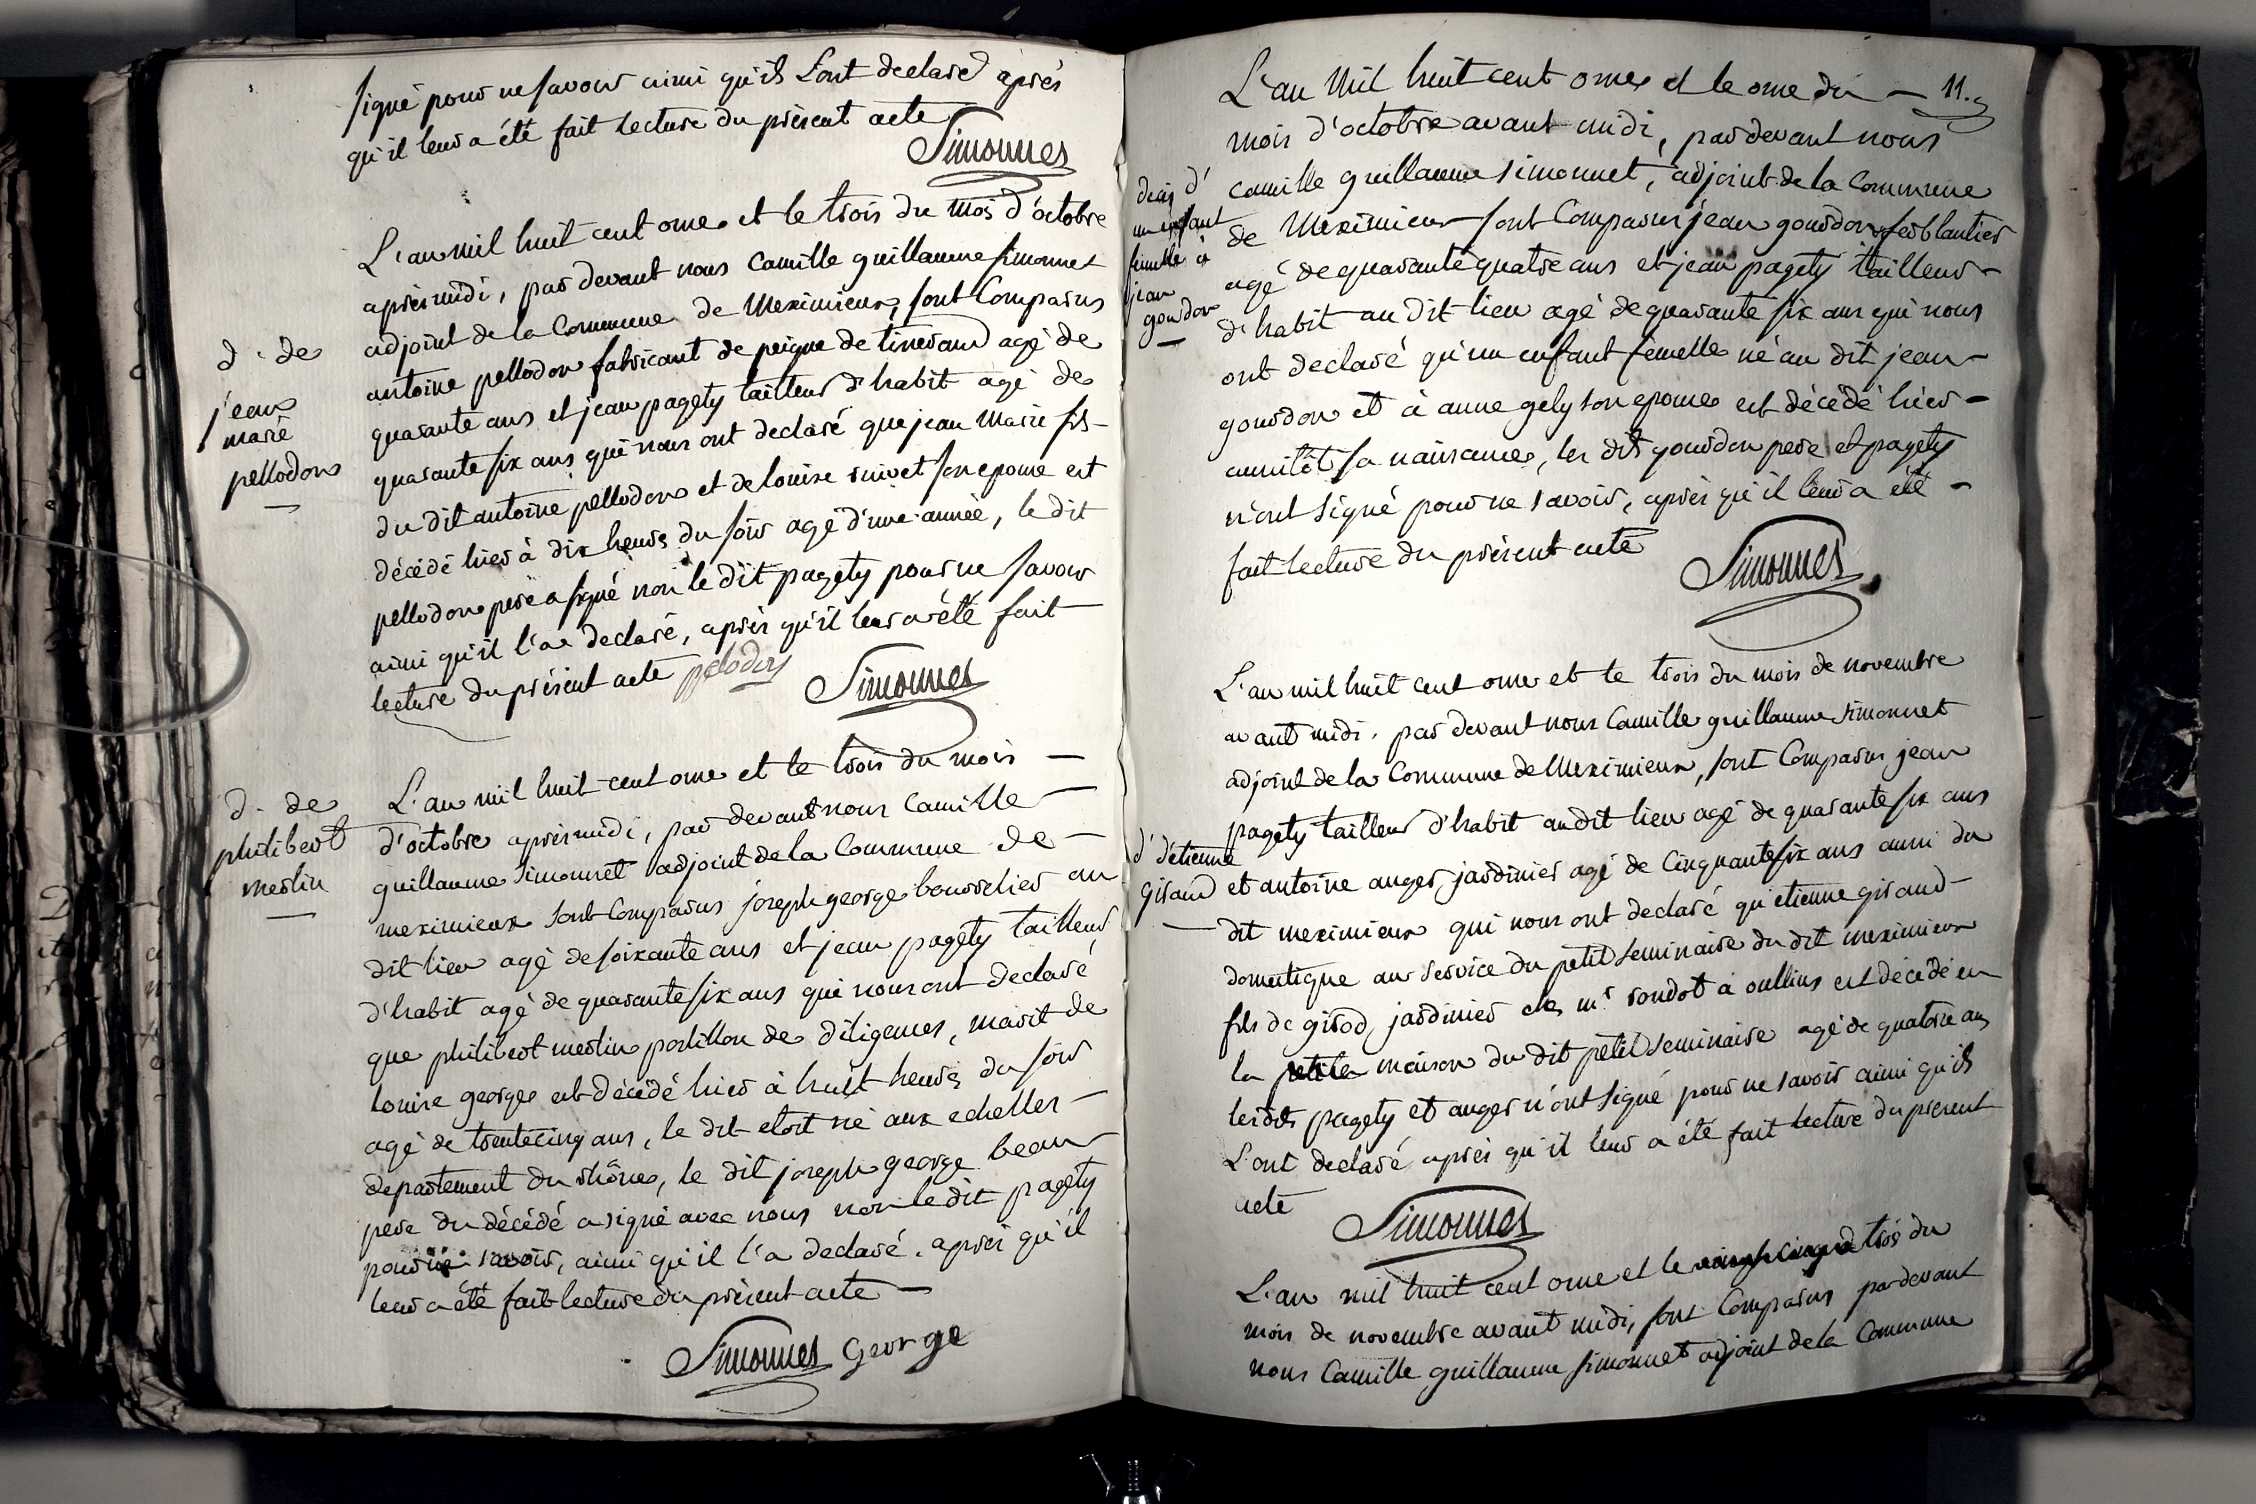 signé pour ne savoir ainsi qu'ils L'ont declaré après
qu'il leur a été fait lecture du présent acte
Simonnet
L'an mil huit cent onze et le trois du mois d'octobre
après midi, par devant nous Camille guillaume simonnet
adjoint de la Commune de Meximieux, sont Comparus
antoine pellodon fabricant de peigne de tisserand agé de
quarante ans et jean pagety tailleur d'habit agé de
quarante six ans qui nous ont declaré que jean Marie fils
du dit antoine pellodon et de louise suivet son epouse est
décédé hier à dix heures du soir agé d'une année, le dit
pellodon pere a signé non le dit pagety pour ne savoir
ainsi qu'il l'a declaré, après qu'il leur a été fait
lecture du présent acte pelodon
Simonnet
d. de
jean
marie
pellodon
L'an mil huit cent onze et le trois du mois
d'octobre après midi, par devant nous Camille
guillaume Simonnet adjoint de la Commune de
meximieux sont Comparus joseph george bourrelier au
dit lieu agé de soixante ans et jean pagety tailleur
d'habit agé de quarante six ans qui nous ont declaré
que philibert merlin postillon de diligences, marit de
louise george est décédé hier à huit heures du soir
agé de trente cinq ans, le dit etoit né aux echelles
departement du rhône, le dit joseph george beau
pere du décédé a signé avec nous non le dit pagety
pour ne savoir, ainsi qu'il l'a declaré. après qu'il
leur a été fait lecture du présent acte
Simonnet George
d. de
philibert
merlin
11.
L'an Mil huit cent onze et le onze du
mois d'octobre avant midi, par devant nous
camille guillaume simonnet, adjoint de la Commune
de Meximieux sont Comparus jean gourdon ferblantier
agé de quarante quatre ans et jean pagety tailleur
d'habit au dit lieu agé de quarante six ans qui nous
ont declaré qu'un enfant femelle né au dit jean
gourdon et à anne gely son epouse est décédé hier
aussitôt sa naissance, les dits gourdon pere et pagety
n'ont signé pour ne savoir, après qu'il leur a été
fait lecture du présent acte
Simonnet
décès d'
un enfant
femelle à
jean
gourdon
L'an mil huit cent onze et le trois du mois de novembre
avant midi. par devant nous Camille guillaume Simonnet
adjoint de la Commune de Meximieux, sont Comparus jean
pagety tailleur d'habit audit lieu agé de quarante six ans
et antoine auger jardinier agé de Cinquante six ans aussi du
dit meximieux qui nous ont declaré qu'etienne giraud
domestique au service du petit seminaire du dit meximieux
fils de girod, jardinier chez mr rondot à oullins est décédé en
la maison du dit petit seminaire agé de quatorze ans
lesdits pagety et auger n'ont signé pour ne savoir ainsi qu'ils
L'ont declaré après qu'il leur a été fait lecture du présent
acte
Simonnet
d' d'étienne
giraud
L'an mil huit cent onze et le vingt cinq trois du
mois de novembre avant midi, sont Comparus par devant
nous Camille guillaume simonnet adjoint de la Commune